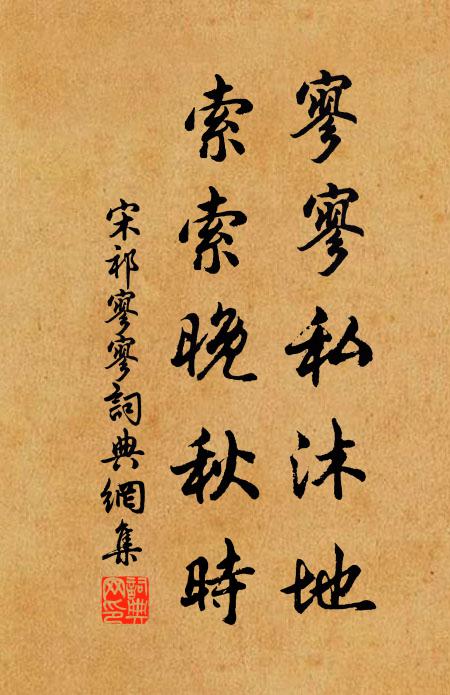 寥寥私沐地
索索晚秋時
宋祁寥寥詞典網集
詞典网印